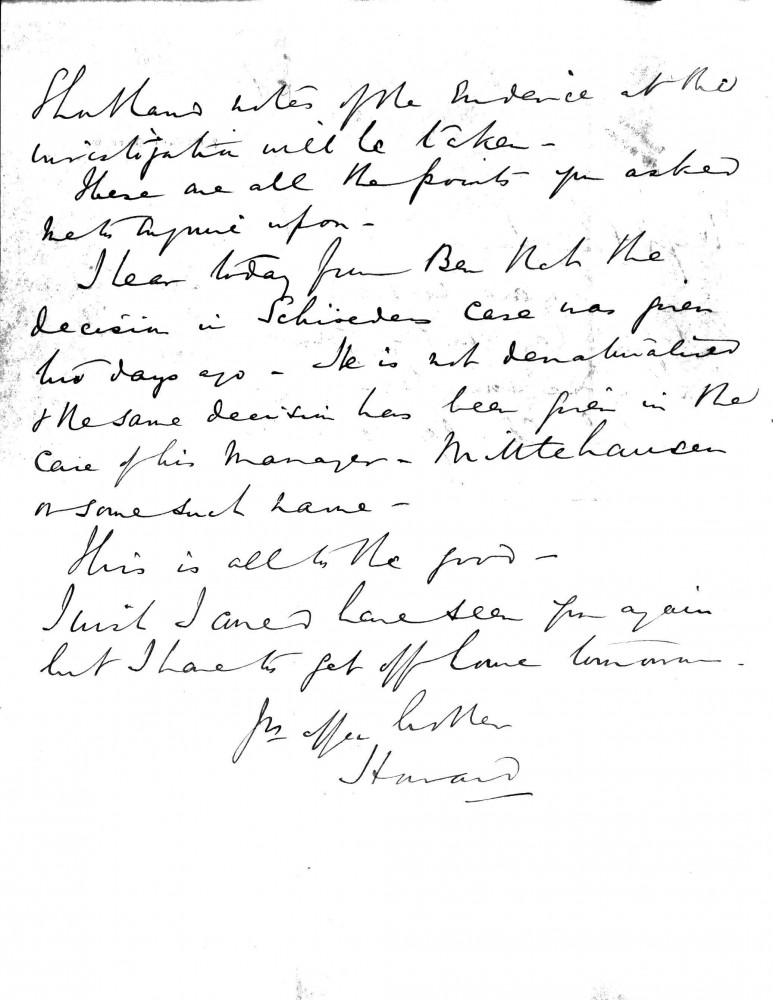 Shorthand notes of the Evidence at the
investigation will be taken –
These are all the points you asked
me to enquire upon –
I hear today from Ben that the
decision in Schroeders case was given
two days ago – He is not denaturalised
& the same decision has been given in the
case of his manager –
or some such name –
This is all to the good –
I wish I could have seen you again
but I have to get off home tomorrow –
Yr affec brother
Howard